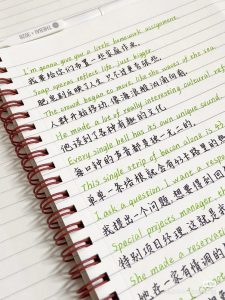 I'm gonna give you a little homework assignment.
我要给你们布置一些家庭作业。
Soap operas reflect life, just bigger.
肥皂剧反映了人生,只不过更夸张些。
The crowd began to move like the waves of the sea.
人群开始移动,像海浪般汹涌向前。
He made a lot of really interesting cultural ref
他谈到了各种有趣的文化
Every single bell has its own unique sound.
每一口钟的声音都是独一无二的。
This single strip of bacon alone is 45
单单一条培根就含有45卡路里的热
I ask a question, I want a respons
我提出一个问题,想要得到回
Special projects manager, th
特别项目经理,这就是我
She made a reservatio
她在一家有情调的